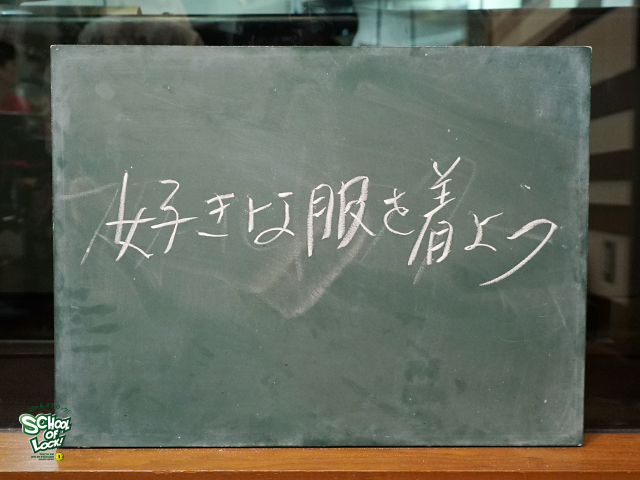 好きな服を着よう
SCHOOL
OF
LOCK!